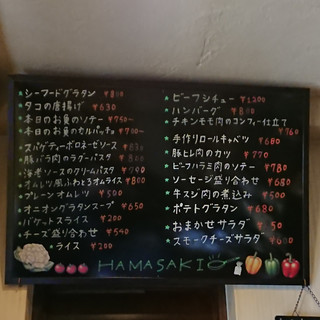 シーフードグラタン ¥800
タコの唐揚げ ¥630
本日のお魚のソテー ¥750〜
本日のお魚のカルパッチョ ¥700〜
スパゲティーボロネーゼソース
豚バラ肉のラグーパスタ
海老ソースのクリームパスタ
オムレツ風ふわとろオムライス ¥800
プレーンオムレツ ¥500
オニオングラタンスープ ¥650
バケットスライス ¥200
チーズ盛り合わせ ¥540
ライス ¥200
ビーフシチュー ¥1200
ハンバーグ ¥810
チキンモモ肉のコンフィー仕立て
¥760
手作りロールキャベツ ¥680
豚ヒレ肉のカツ ¥770
ビーフハラミ肉のソテー ¥780
ソーセージ盛り合わせ ¥680
牛スジ肉の煮込み ¥500
ポテトグラタン ¥680
おまかせサラダ
スモークチーズサラダ
HAMASAKI